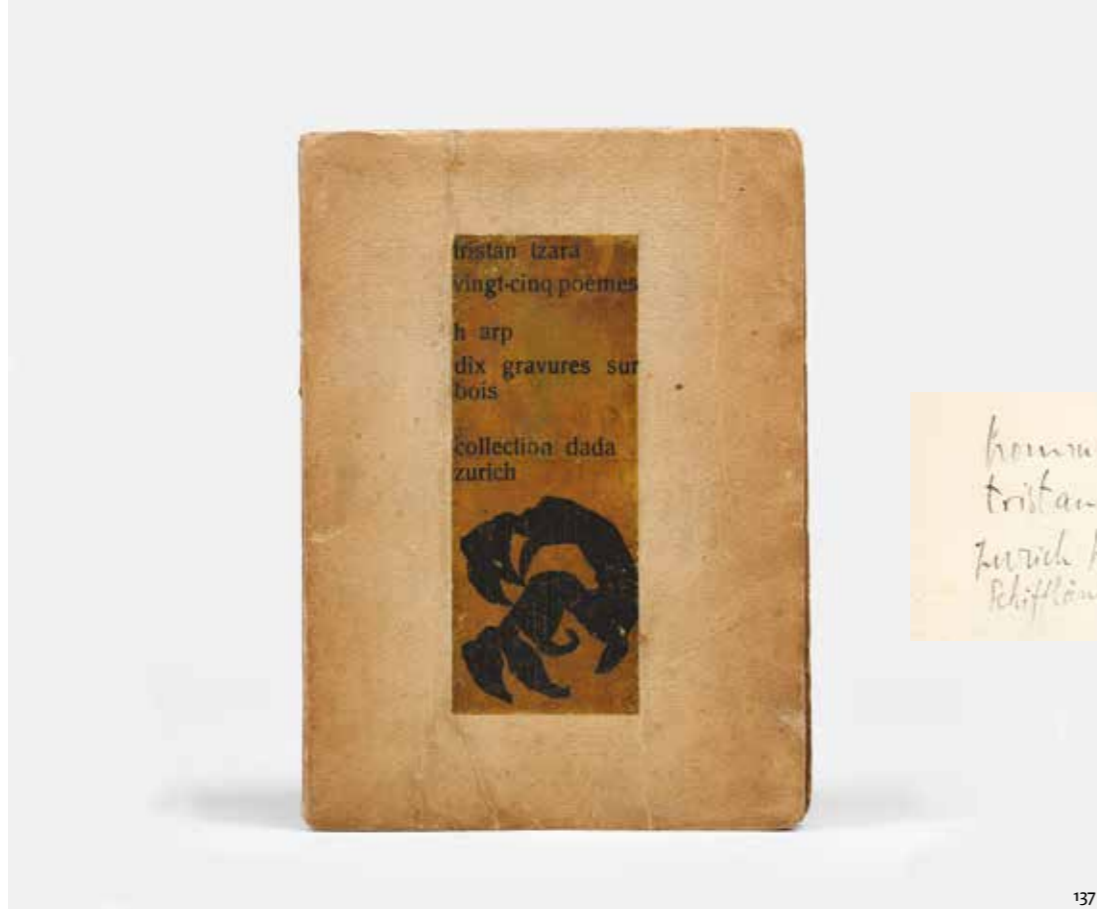 tristan tzara
vingt-cinq poèmes
h arp
dix gravures sur
bois
collection dada
zurich
tristan
zurich
137